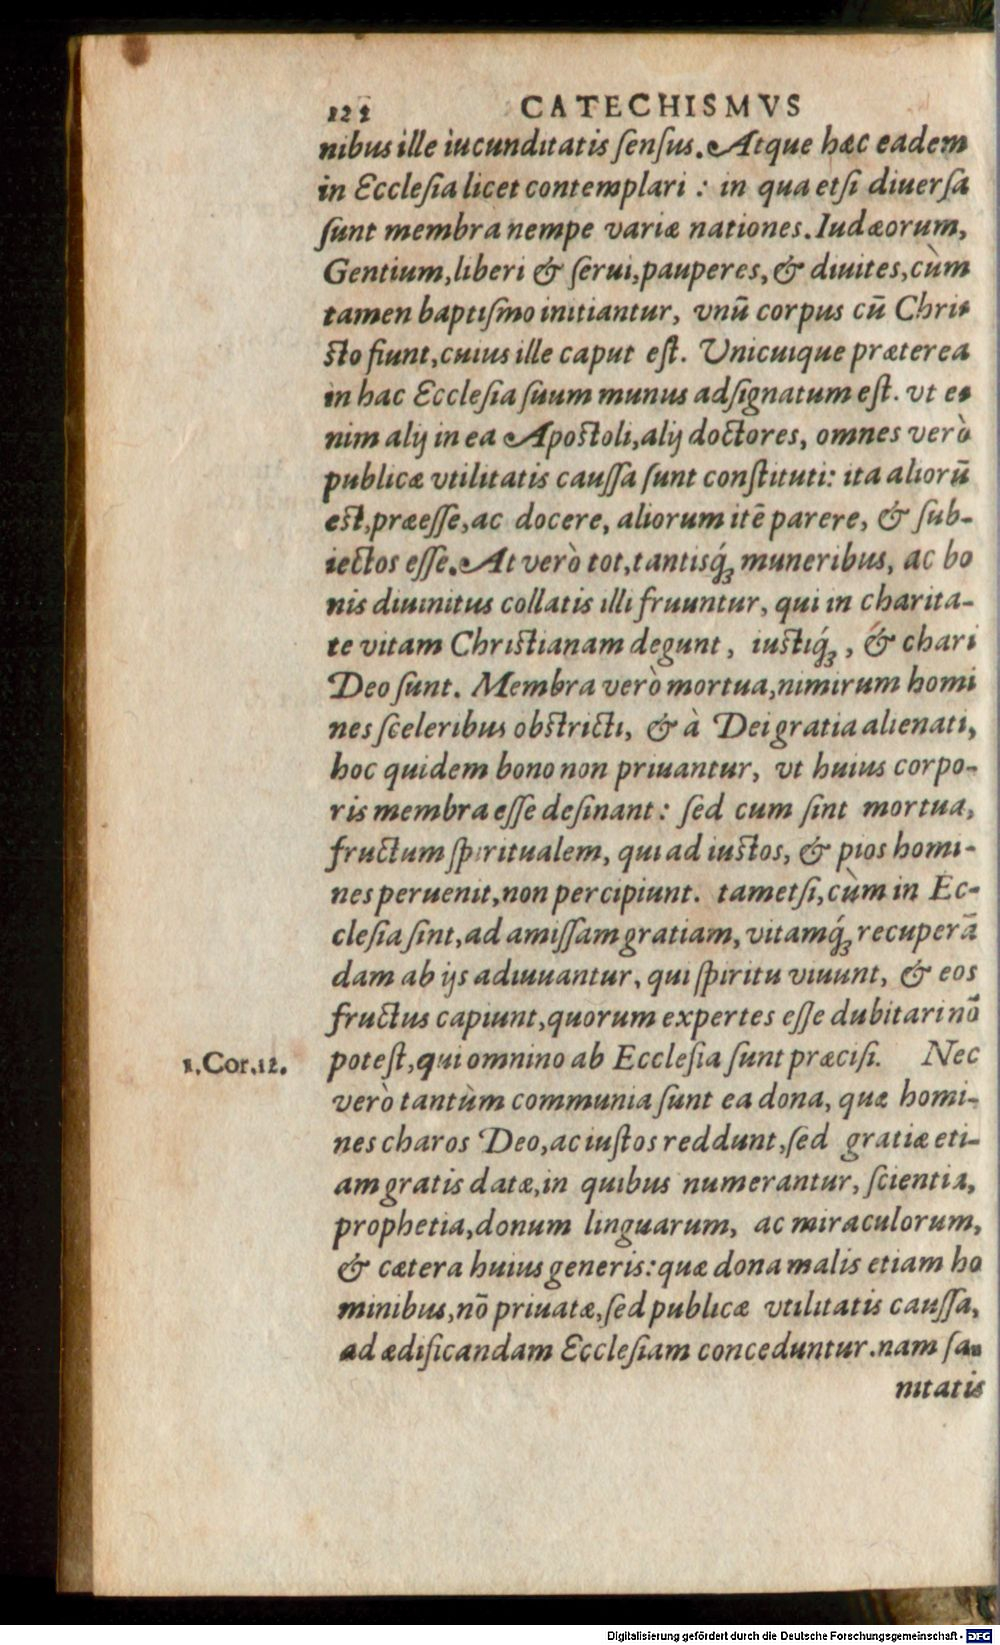 122 CATECHISMVS
nibus ille iucunditatis ſenſus. Atque hæc eadem
in Eccleſia licet contemplari : in qua etſi diuerſa
ſunt membra nempe variæ nationes. Iudæorum,
Gentium, liberi & ſerui, pauperes, & diuites, cùm
tamen baptiſmo initiantur, vnū corpus cū Chri-
ſto fiunt, cuius ille caput eſt. Unicuique præterea
in hac Eccleſia ſuum munus adſignatum eſt. vt e-
nim alij in ea Apoſtoli, alij doctores, omnes verò
publicæ vtilitatis cauſſa ſunt conſtituti: ita aliorū
eſt, præeſſe, ac docere, aliorum itē parere, & ſub-
iectos eſſe. At verò tot, tantisq́ꝫ muneribus, ac bo
nis diuinitus collatis illi fruuntur, qui in charita-
te vitam Chriſtianam degunt, iuſtiq́ꝫ, & chari
Deo ſunt. Membra verò mortua, nimirum homi
nes ſceleribus obſtricti, & à Dei gratia alienati,
hoc quidem bono non priuantur, vt huius corpo-
ris membra eſſe deſinant: ſed cum ſint mortua,
fructum ſpiritualem, qui ad iuſtos, & pios homi-
nes peruenit, non percipiunt. tametſi, cùm in Ec-
cleſia ſint, ad amiſſam gratiam, vitamq́ꝫ recuperā
dam ab ijs adiuuantur, qui ſpiritu viuunt, & eos
fructus capiunt, quorum expertes eſſe dubitari nō
1. Cor. 12. poteſt, qui omnino ab Eccleſia ſunt præciſi. Nec
verò tantùm communia ſunt ea dona, quæ homi-
nes charos Deo, ac iuſtos reddunt, ſed gratiæ eti-
am gratis datæ, in quibus numerantur, ſcientia,
prophetia, donum linguarum, ac miraculorum,
& cætera huius generis: quæ dona malis etiam ho
minibus, nō priuatæ, ſed publicæ vtilitatis cauſſa,
ad ædificandam Eccleſiam conceduntur. nam ſa-
nitatis
Digitalisierung gefördert durch die Deutsche Forschungsgemeinschaft - DFG